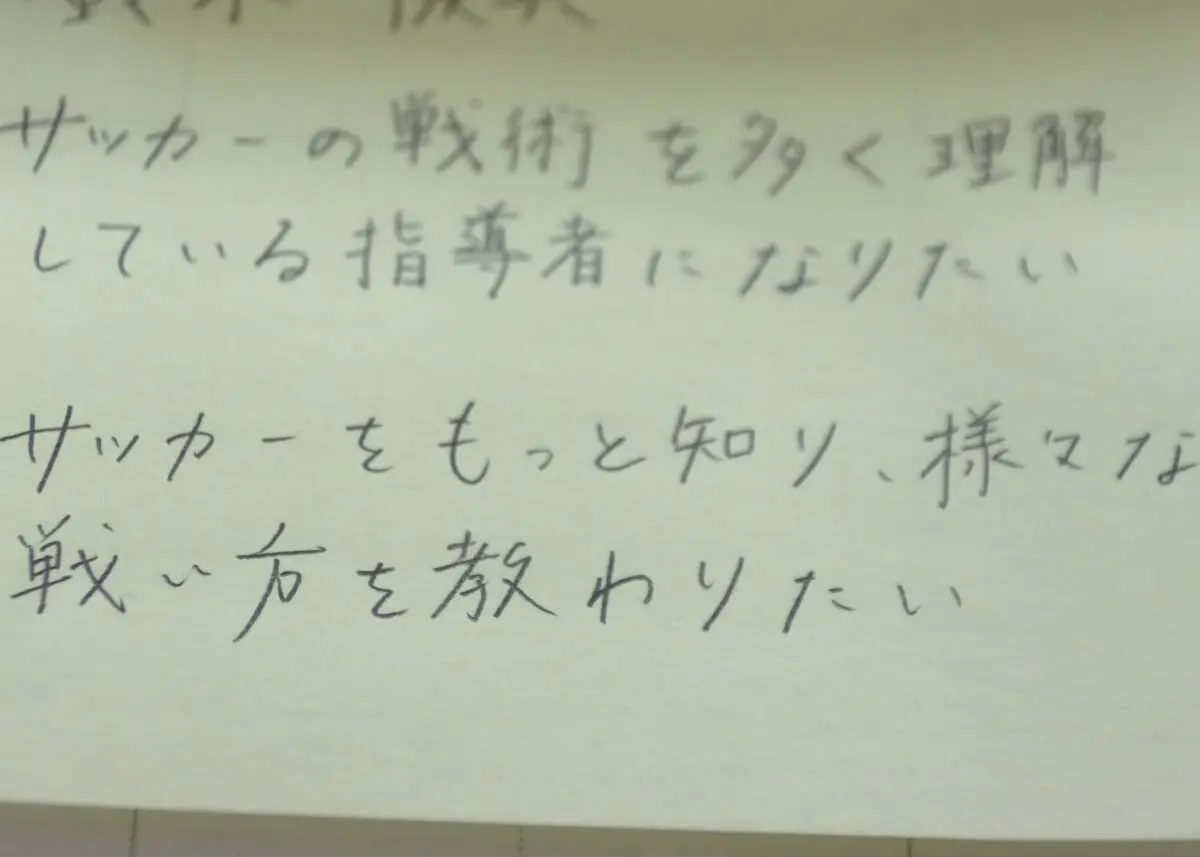 サッカーの戦術を多く理解
している指導者になりたい
サッカーをもっと知り、様々な
戦い方を教わりたい